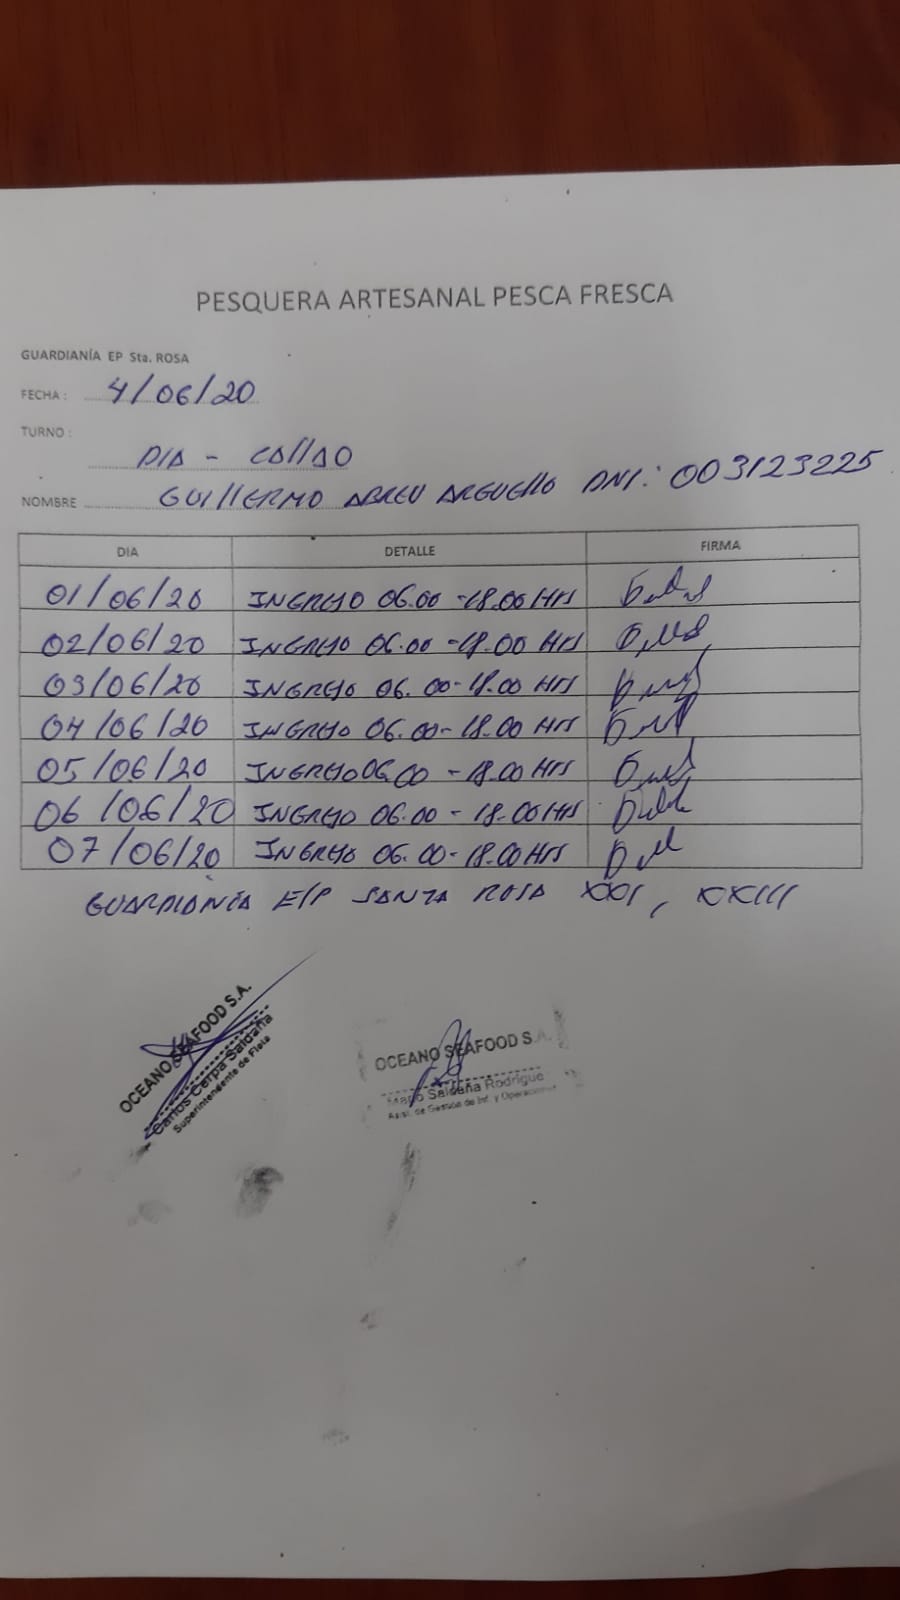 PESQUERA ARTESANAL PESCA FRESCA
GUARDIANÍA EP Sta. ROSA
FECHA: 4/06/20
TURNO:
DIA - CALLAO
NOMBRE GUILLERMO ABREU ARGUELLO DNI: 003123225
DIA DETALLE FIRMA
01/06/20 INGRESO 06.00 - 18.00 HRS
02/06/20 INGRESO 06.00 - 18.00 HRS
03/06/20 INGRESO 06.00 - 18.00 HRS
04/06/20 INGRESO 06.00 - 18.00 HRS
05/06/20 INGRESO 06.00 - 18.00 HRS
06/06/20 INGRESO 06.00 - 18.00 HRS
07/06/20 INGRESO 06.00 - 18.00 HRS
GUARDIANÍA E/P SANTA ROSA XXI, XXIII
OCEANO SEAFOOD S.A.
Carlos Cerpa Saldaña
Superintendente de Flota
OCEANO SEAFOOD S.A.
Mario Saldaña Rodrigue
Asist. de Gestión de Inf. y